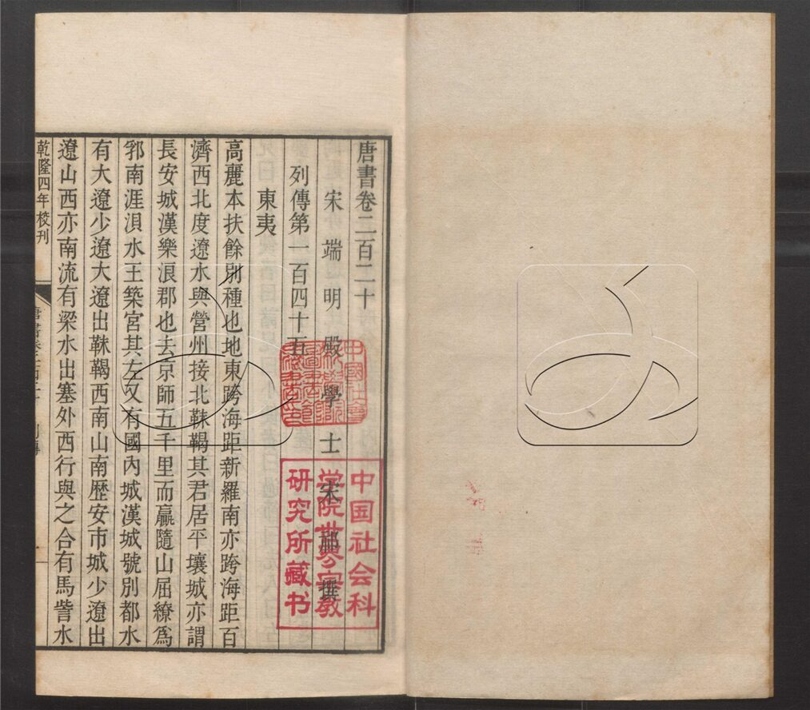 唐書卷二百二十
宋端明殿學士宋祁撰
列傳第一百四十五
東夷
高麗本扶餘別種也地東跨海距新羅南亦跨海距百
濟西北度遼水與營州接北靺鞨其君居平壤城亦謂
長安城漢樂浪郡也去京師五千里而贏隨山屈繚爲
郛南涯浿水王築宮其左又有國內城漢城號別都水
有大遼少遼大遼出靺鞨西南山南歷安市城少遼出
遼山西亦南流有梁水出塞外西行與之合有馬訾水
乾隆四年校刊
中国社会科
学院世界宗教
研究所藏书